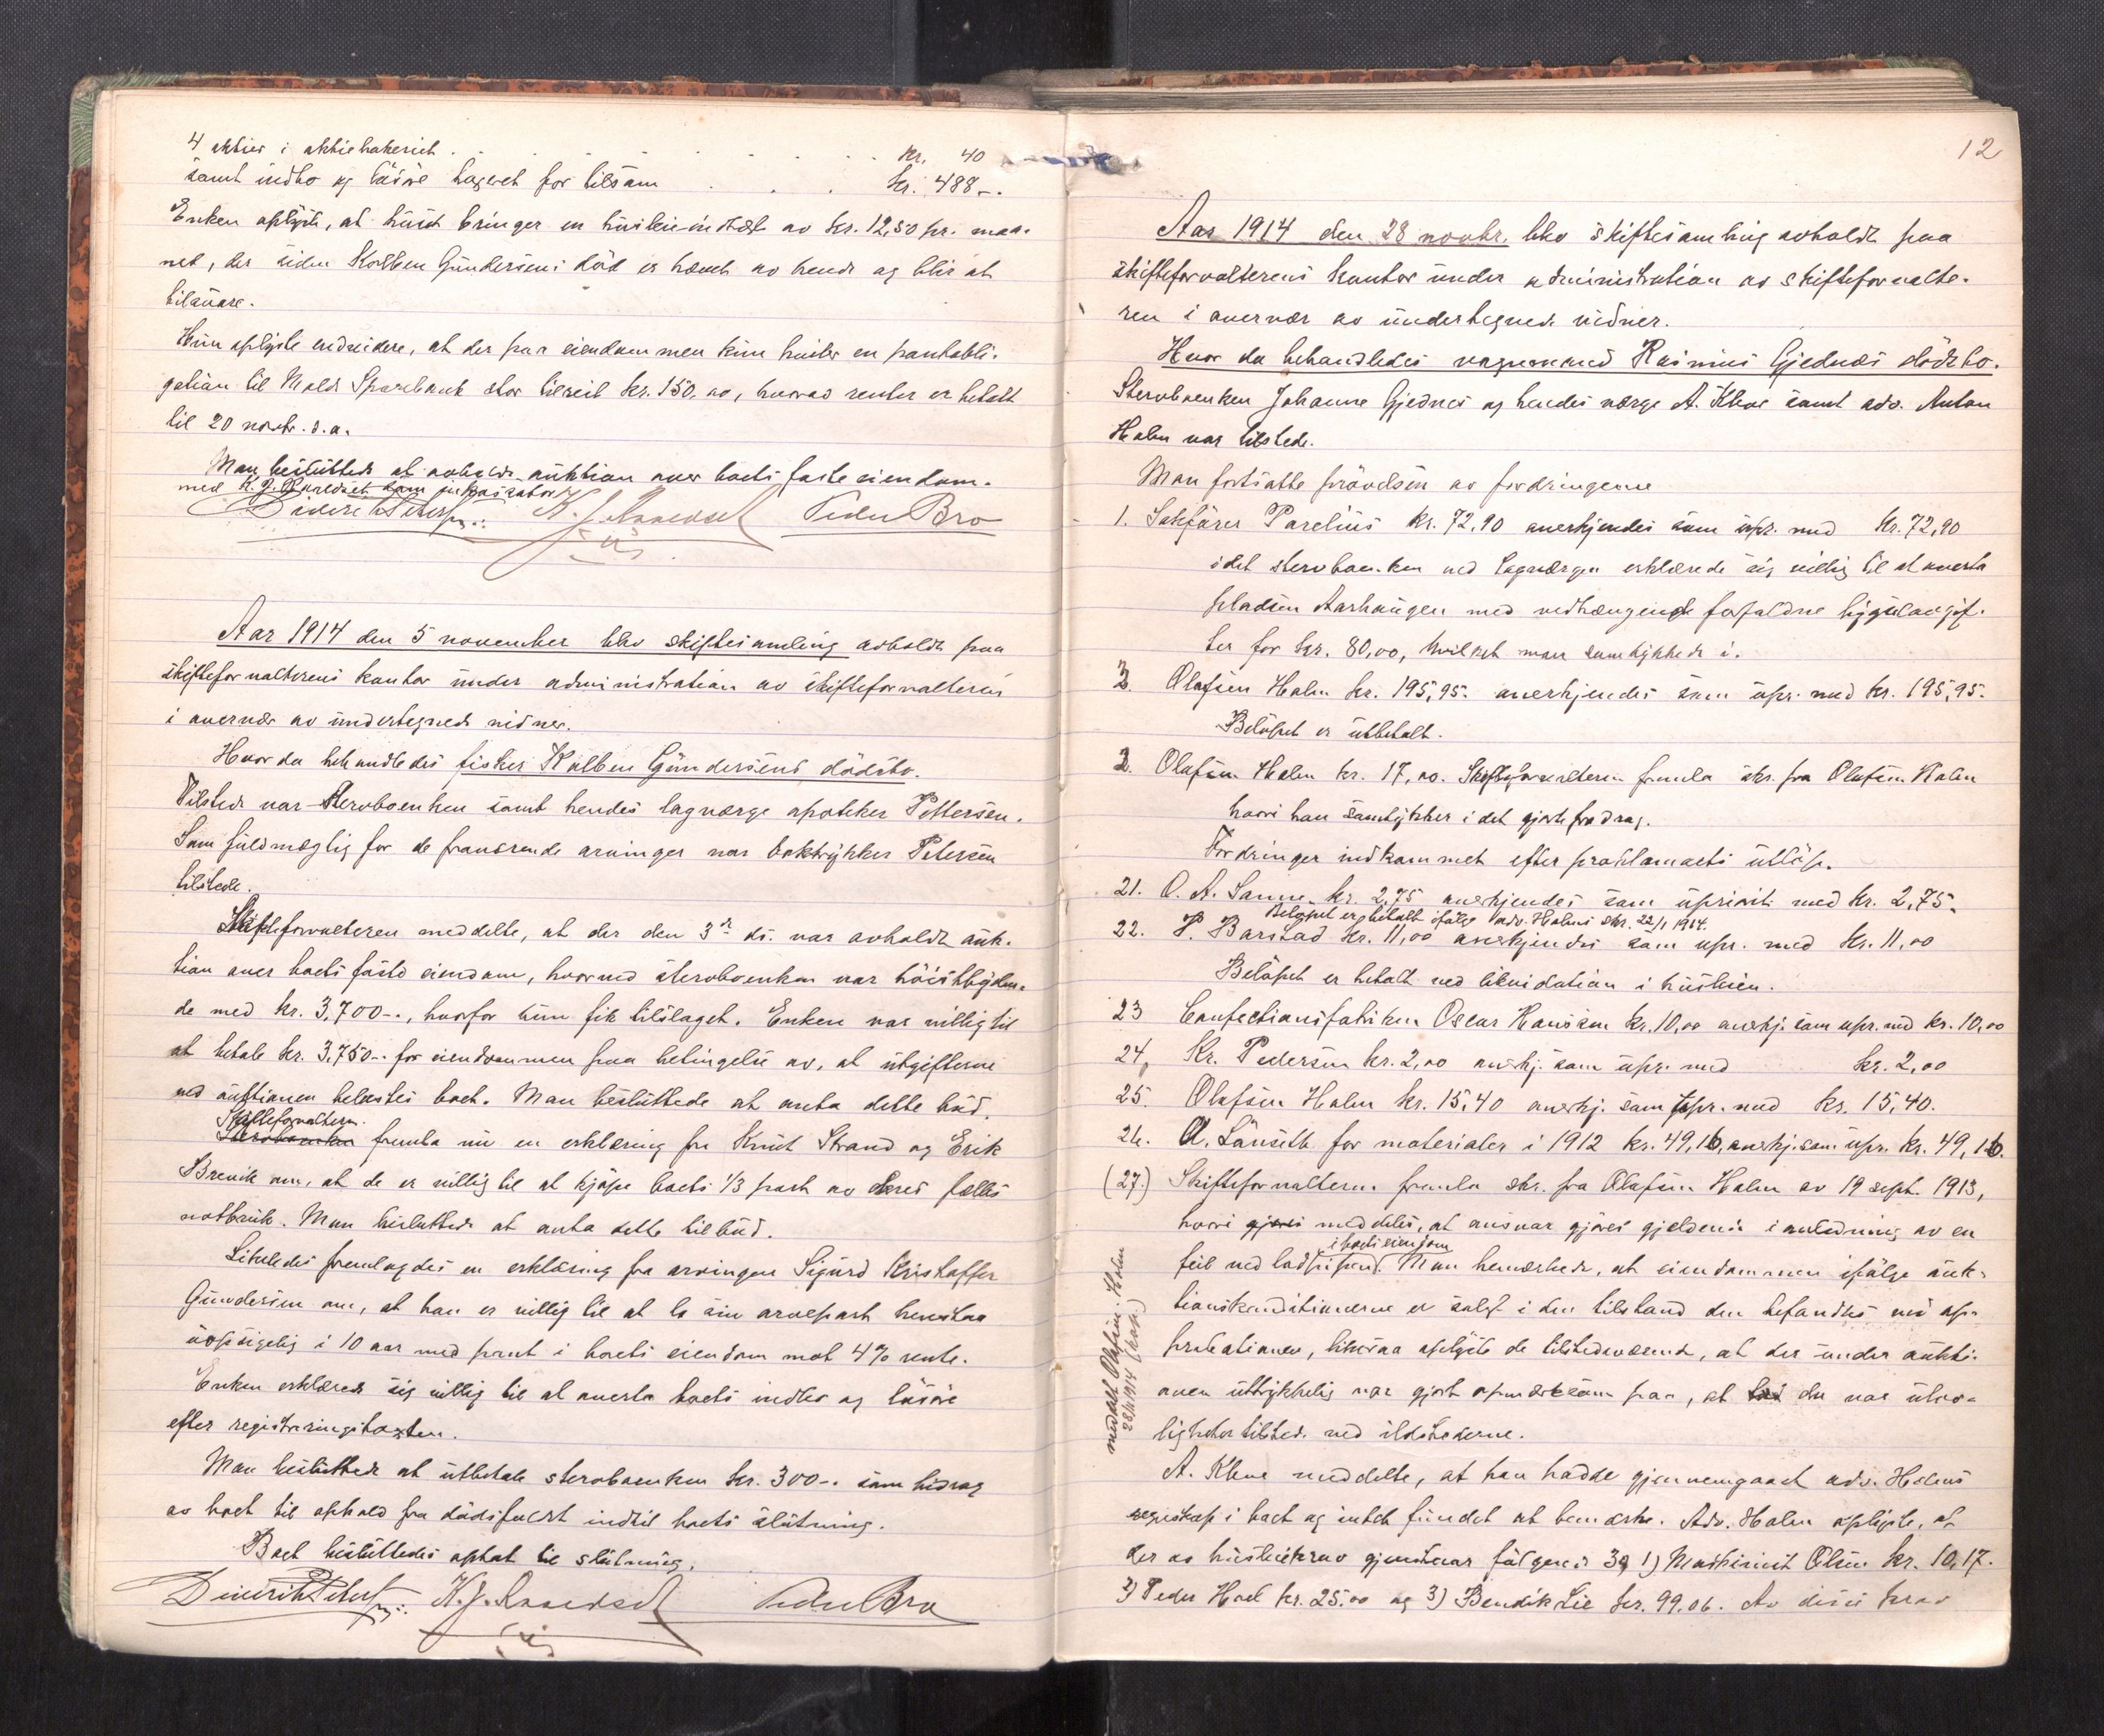 4 aktier i aktiebakeriet . . . . . . . . kr. 40
samt indbo og løsøre tagered for tilsam . . . kr. 488-.
Enken oplyste, at huset bringer en husleieindtægt av kr. 12,50 pr. maa-
ned, der siden Kolben Gundersens død er hævet av hende og blir at
tilsvare.
Hun oplyste endvidere, at der paa eiendommen kun hviler en pantobli-
gation til Molde Sparebank stor tilrest kr. 150,00, hvorav renter er betalt
til 20 novbr. d.a.
Man besluttede at avholde auktion over boets faste eiendom.
med K. J. som inkassator
Diderik Petersen. K. J. Peder Bro
Aar 1914 den 5 november blev skiftesamling avholdt paa
skifteforvalterens kontor under administration av skifteforvalteren
i overvær av undertegnede vidner.
Hvor da behandledes fisker Kolben Gundersens dødsbo.
Tilstede var sterboenken samt hendes lagværge apoteker Pettersen.
Som fuldmægtig for de fraværende arvinger var boktrykker Petersen
tilstede.
Skifteforvalteren meddelte, at der den 3de ds. var avholdt auk-
tion over boets faste eiendom, hvorved sterboenken var høistbyden-
de med kr. 3,700-., hvorfor hun fik tilslaget. Enken var villig til
at betale kr. 3,750-. for eiendommen paa betingelse av, at utgifterne
ved auktionen belastes boet. Man besluttede at anta dette bud.
Skifteforvalteren
Sterboenken fremla nu en erklæring fra Knut Strand og Erik
Brevik om, at de er villig til at kjøpe boets 1/3 part av deres fælles
notbruk. Man besluttede at anta dette tilbud.
Likeledes fremlagdes en erklæring fra arvingen Sigurd Kristoffer
Gundersen om, at han er villig til at la sin arvepart henstaa
uopsigelig i 10 aar med pant i boets eiendom mot 4% rente.
Enken erklærede sig villig til at overta boets indbo og løsøre
efter registreringstaxten.
Man besluttede at utbetale sterboenken kr. 300-. som bidrag
av boet til ophold fra dødsfaldet indtil boets slutning.
Boet besluttedes optat til slutning.
Diderik Petersen. K. J. Peder Bro
12
Aar 1914 den 28 novbr. blev skiftesamling avholdt paa
skifteforvalterens kontor under administration av skifteforvalte-
ren i overvær av undertegnede vidner.
Hvor da behandledes vognmand Rasmus Gjednæs dødsbo.
Sterboenken Johanne Gjednes og hendes værge A. Kleve samt adv. Anton
Holm var tilstede.
Man fortsatte prøvelsen av fordringerne
1. Sakfører Parelius kr. 72,90 anerkjendes som upr. med kr. 72,90
idet sterboenken ved lagværgen erklærede sig villig til at overta
pladsen Aarhaugen med vedhængende forfaldne bygselavgif-
ter for kr. 80,00, hvilket man samtykkede i.
2. Olafsen Holm kr. 195,95. anerkjendes som upr. med kr. 195,95.
Beløpet er utbetalt.
3. Olafsen Holm kr. 17,00. Skifteforvalteren fremla skr. fra Olafsen Holm
hvori han samtykker i det gjorte fradrag.
Fordringer indkommet efter proklamaets utløp.
21. O. A. Sanne kr. 2,75 anerkjendes som uprivit. med kr. 2,75.
Beløpet er betalt ifølge adv. Holms skr. 22/1 1914.
22. P. Barstad kr. 11,00 anerkjendes som upr. med kr. 11,00
Beløpet er betalt ved likvidation i husleien.
23 Confectionsfabriken Oscar Hansken kr. 10,00 anerkj. som upr. med kr. 10,00
24, Kr. Pedersen kr. 2,00 anerkj. som upr. med kr. 2,00
25. Olafsen Holm kr. 15,40 anerkj. som upr. med kr. 15,40.
26. O. Lønseth for materialer i 1912 kr. 49,16, anerkj. som upr. kr. 49,16.
(27.) Skifteforvalteren fremla skr. fra Olafsen Holm av 19 sept. 1913,
hvori gjøres meddeles, at ansvar gjøres gjeldende i anledning av en
i boets eiendom
feil ved Man bemærkede, at eiendommen ifølge auk-
tionskonditionerne er solgt i den tilstand den befandtes ved ap-
probationen, likesaa oplyste de tilstedeværende, at der under aukti-
onen uttrykkelig var gjort opmærksom paa, at der var ulov-
ligheter tilstede ved ildstederne.
meddelt Olafsen Holm
28/11 1914
A. Kleve meddelte, at han hadde gjennemgaaet adv. Holms
regnskap i boet og intet fundet at bemærke. Adv. Holm oplyste, at
der av husleiekrav gjenstaar følgende 3, 1) Maskinist Olsen kr. 10,17.
2) Peder Hoel kr. 25.00 og 3) Bendik Lie kr. 99.06. Av disse krav